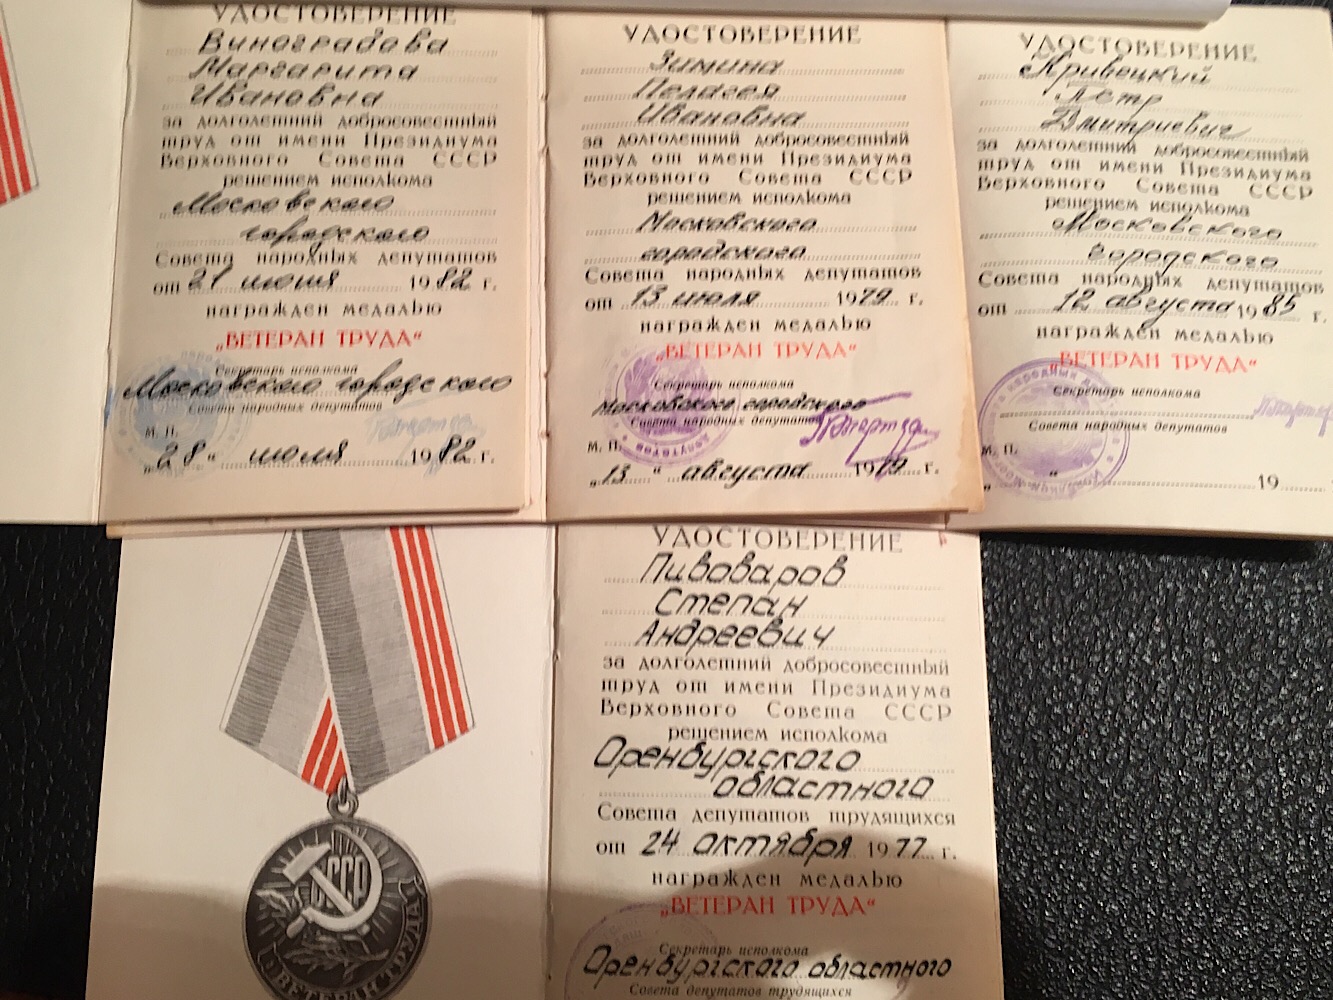 УДОСТОВЕРЕНИЕ
Виноградова
Маргарита
Ивановна
за долголетний добросовестный
труд от имени Президиума
Верховного Совета СССР
решением исполкома
Московского
городского
Совета народных депутатов
от 21 июня 1982 г.
награжден медалью
„ВЕТЕРАН ТРУДА“
Секретарь исполкома
Московского городского
Совета народных депутатов
М. П.
„28“ июля 1982 г.
УДОСТОВЕРЕНИЕ
Зимина
Пелагея
Ивановна
за долголетний добросовестный
труд от имени Президиума
Верховного Совета СССР
решением исполкома
Московского
городского
Совета народных депутатов
от 13 июля 1979 г.
награжден медалью
„ВЕТЕРАН ТРУДА“
Секретарь исполкома
Московского городского
Совета народных депутатов
М. П.
„13“ августа 1979 г.
УДОСТОВЕРЕНИЕ
Кривецкий
Петр
Дмитриевич
за долголетний добросовестный
труд от имени Президиума
Верховного Совета СССР
решением исполкома
Московского
городского
Совета народных депутатов
от 12 августа 1985 г.
награжден медалью
„ВЕТЕРАН ТРУДА“
Секретарь исполкома
Совета народных депутатов
М. П.
„ “ 19
УДОСТОВЕРЕНИЕ
Пивоваров
Степан
Андреевич
за долголетний добросовестный
труд от имени Президиума
Верховного Совета СССР
решением исполкома
Оренбургского
областного
Совета депутатов трудящихся
от 24 октября 1977 г.
награжден медалью
„ВЕТЕРАН ТРУДА“
Секретарь исполкома
Оренбургского областного
Совета депутатов трудящихся
СССР
ВЕТЕРАН ТРУДА